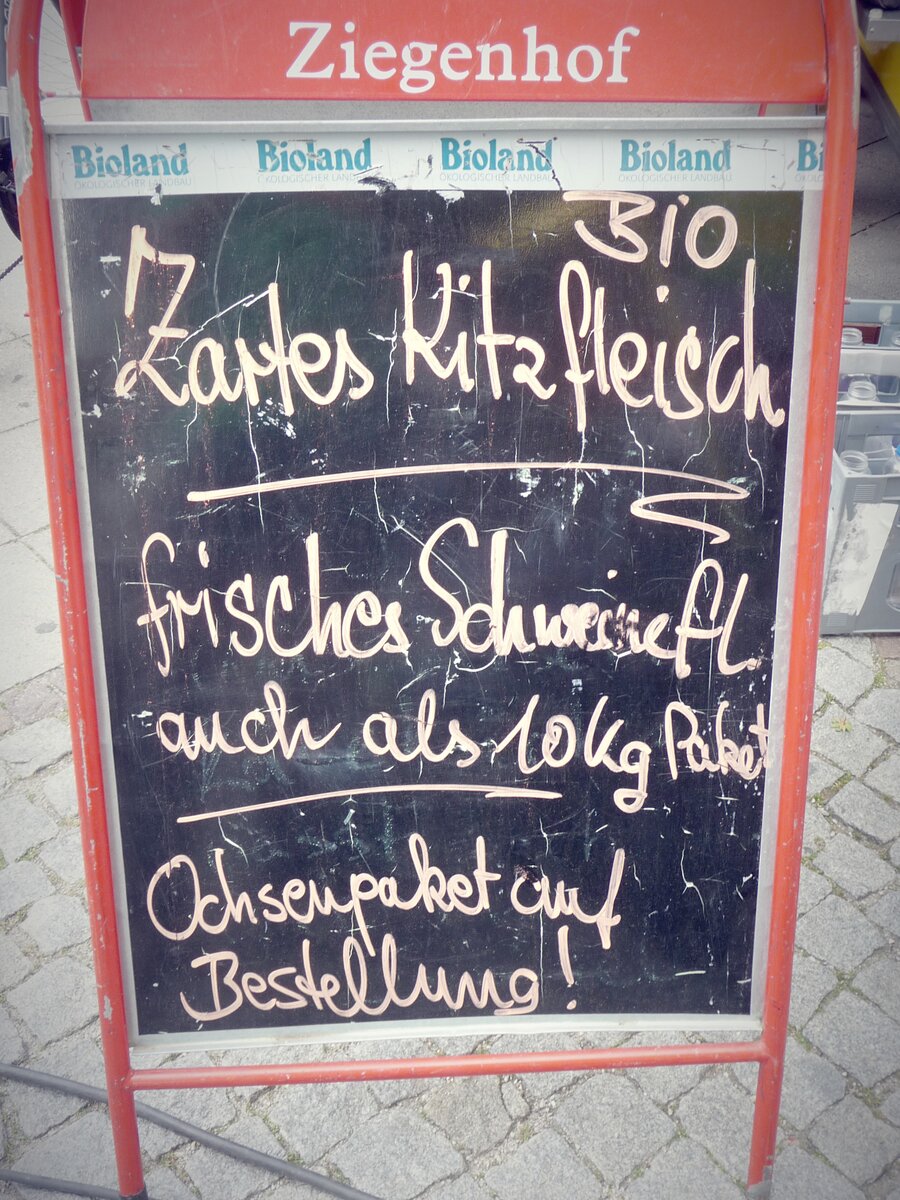 Ziegenhof
Bioland Bioland Bioland Bioland Bi
ÖKOLOGISCHER LANDBAU ÖKOLOGISCHER LANDBAU ÖKOLOGISCHER LANDBAU ÖKOLOGISCHER LANDBAU
BIO
Zartes Kitzfleisch
frisches Schweinefl.
auch als 10 kg Paket
Ochsenpaket auf
Bestellung!